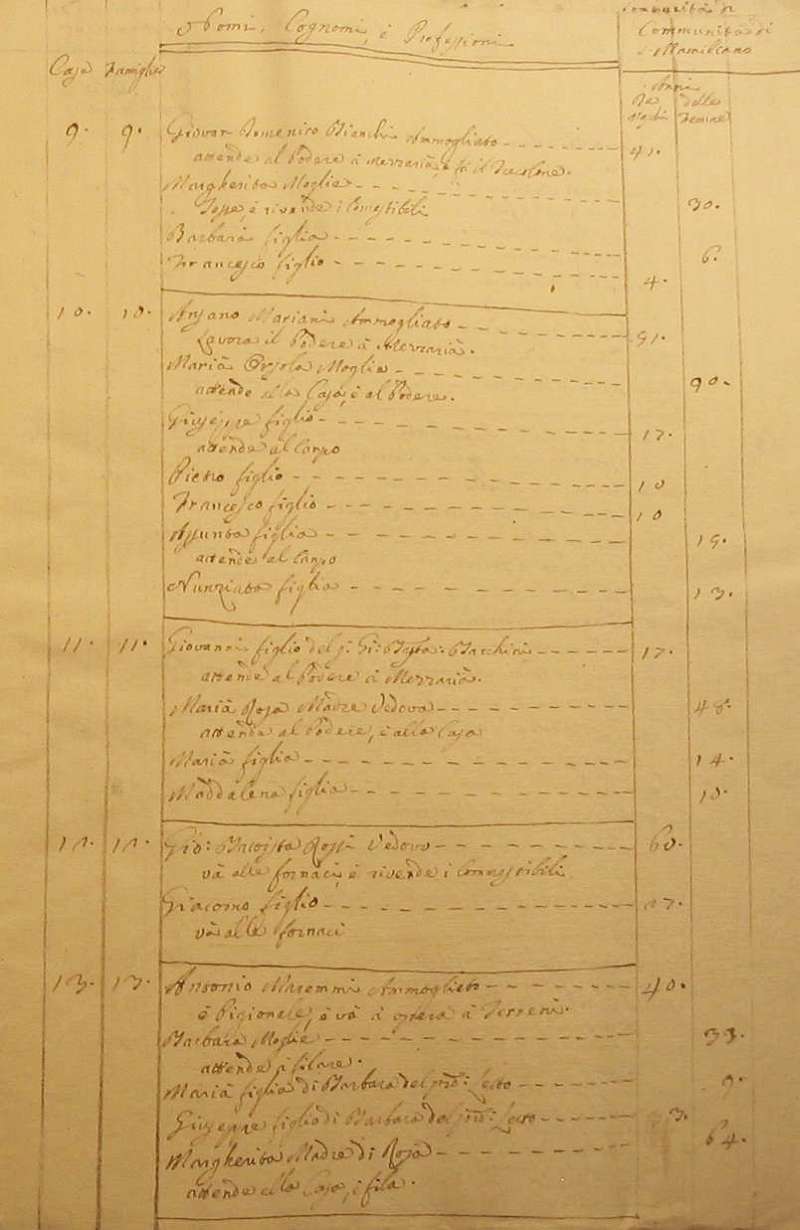 Nomi, Cognomi, è Professioni
Communità di
Case Famiglie
Anni
delle
Femine
9. 9. Giovan Domenico Bianchi Ammogliato 41.
attende al Podere à Mezzarìa, è fà il
Margherita Moglie 30.
Tesse, è rivende i Comestibili
Barbara figlia 6.
Francesco figlio 4.
10. 10. Ansano Mariani Ammogliato
Lavora il Podere à Mezzarìa.
Maria Orsola Moglie
attende alla Casa, è al Podere.
Giuseppe figlio 17.
attende al Campo
Pietro figlio 10
Francesco figlio 10
Assunta figlia 19.
attende al Campo
Nunziata figlia 13.
11. 11. Giovanni figlio del 17.
attende al Podere à Mezzarìa.
Maria Rosa Madre Vedova 48.
attende al Podere, è alla Casa
Maria figlia 14.
Maddalena figlia 10.
12. 12. Gio: Batista Rossi Vedovo 60.
và alle fornaci, è rivende i Commestibili
Giacomo figlio 27.
và alle fornaci
13. 13. Antonio Maremmi Ammogliato 40.
è Pigionale, è và à opera à Terreni.
Barbara Moglie 33.
attende à filare.
Maria figlia di Barbara del Letto 9.
Giuseppe figlio di Barbara del Letto 3.
Margherita Madre di Rosa 64.
attende alla Casa, è fila.